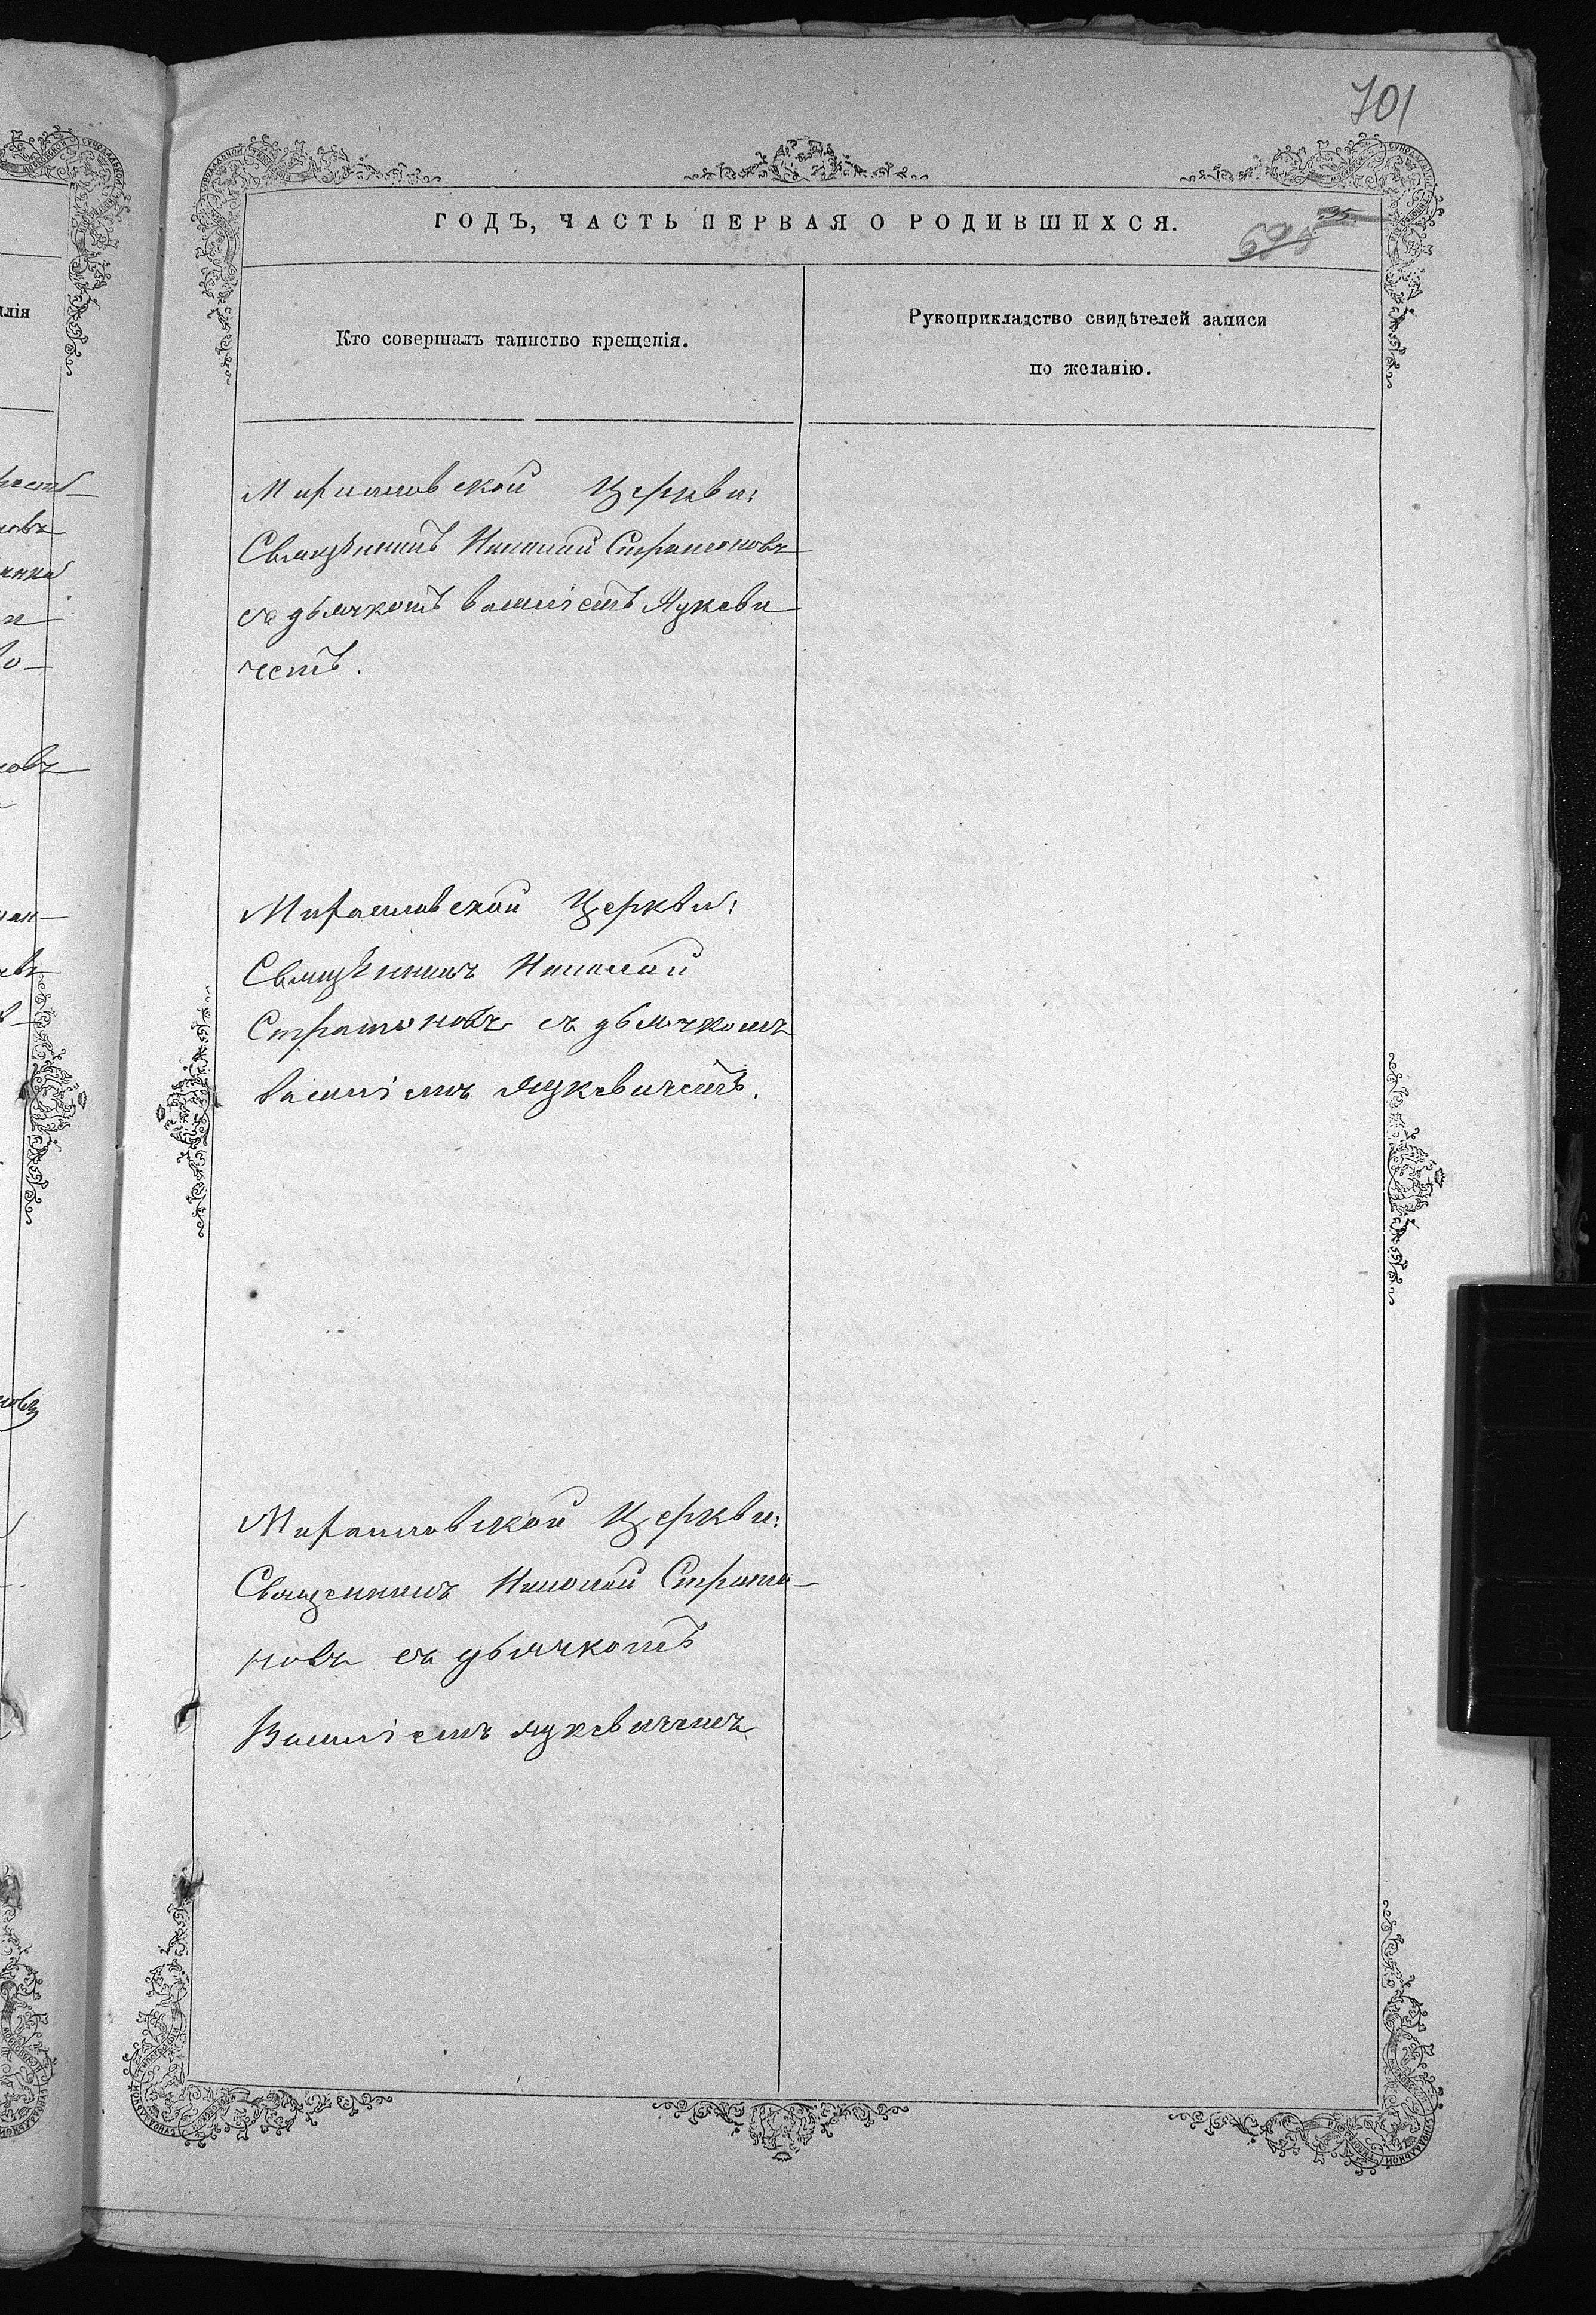 701
ГОДЪ, ЧАСТЬ ПЕРВАЯ О РОДИВШИХСЯ.
Кто совершалъ таинство крещенія.
Рукоприкладство свидѣтелей записи
по желанію.
Церкви:
Свящѣнникъ Николай Стратоновъ
съ дьячкомъ Василіемъ Яцкеви
чемъ.
Церкви:
Свящѣнникъ Николай
Стратоновъ съ дьячкомъ
Василіемъ Яцкевичемъ.
Церкви:
Священникъ Николай Страто-
новъ съ дьячкомъ
Василіемъ Яцкевичемъ